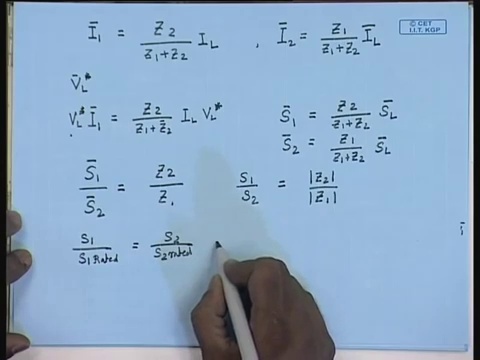 Ī₁ = Z₂/(Z₁+Z₂) I_L , Ī₂ = Z₁/(Z₁+Z₂) Ī_L
© CET
I.I.T. KGP
V̄_L*
V_L* Ī₁ = Z₂/(Z₁+Z₂) I_L V_L*
S̄₁ = Z₂/(Z₁+Z₂) S̄_L
S̄₂ = Z₁/(Z₁+Z₂) S̄_L
S̄₁/S̄₂ = Z₂/Z₁
S₁/S₂ = |Z₂|/|Z₁|
S₁/S₁ Rated = S₂/S₂ rated